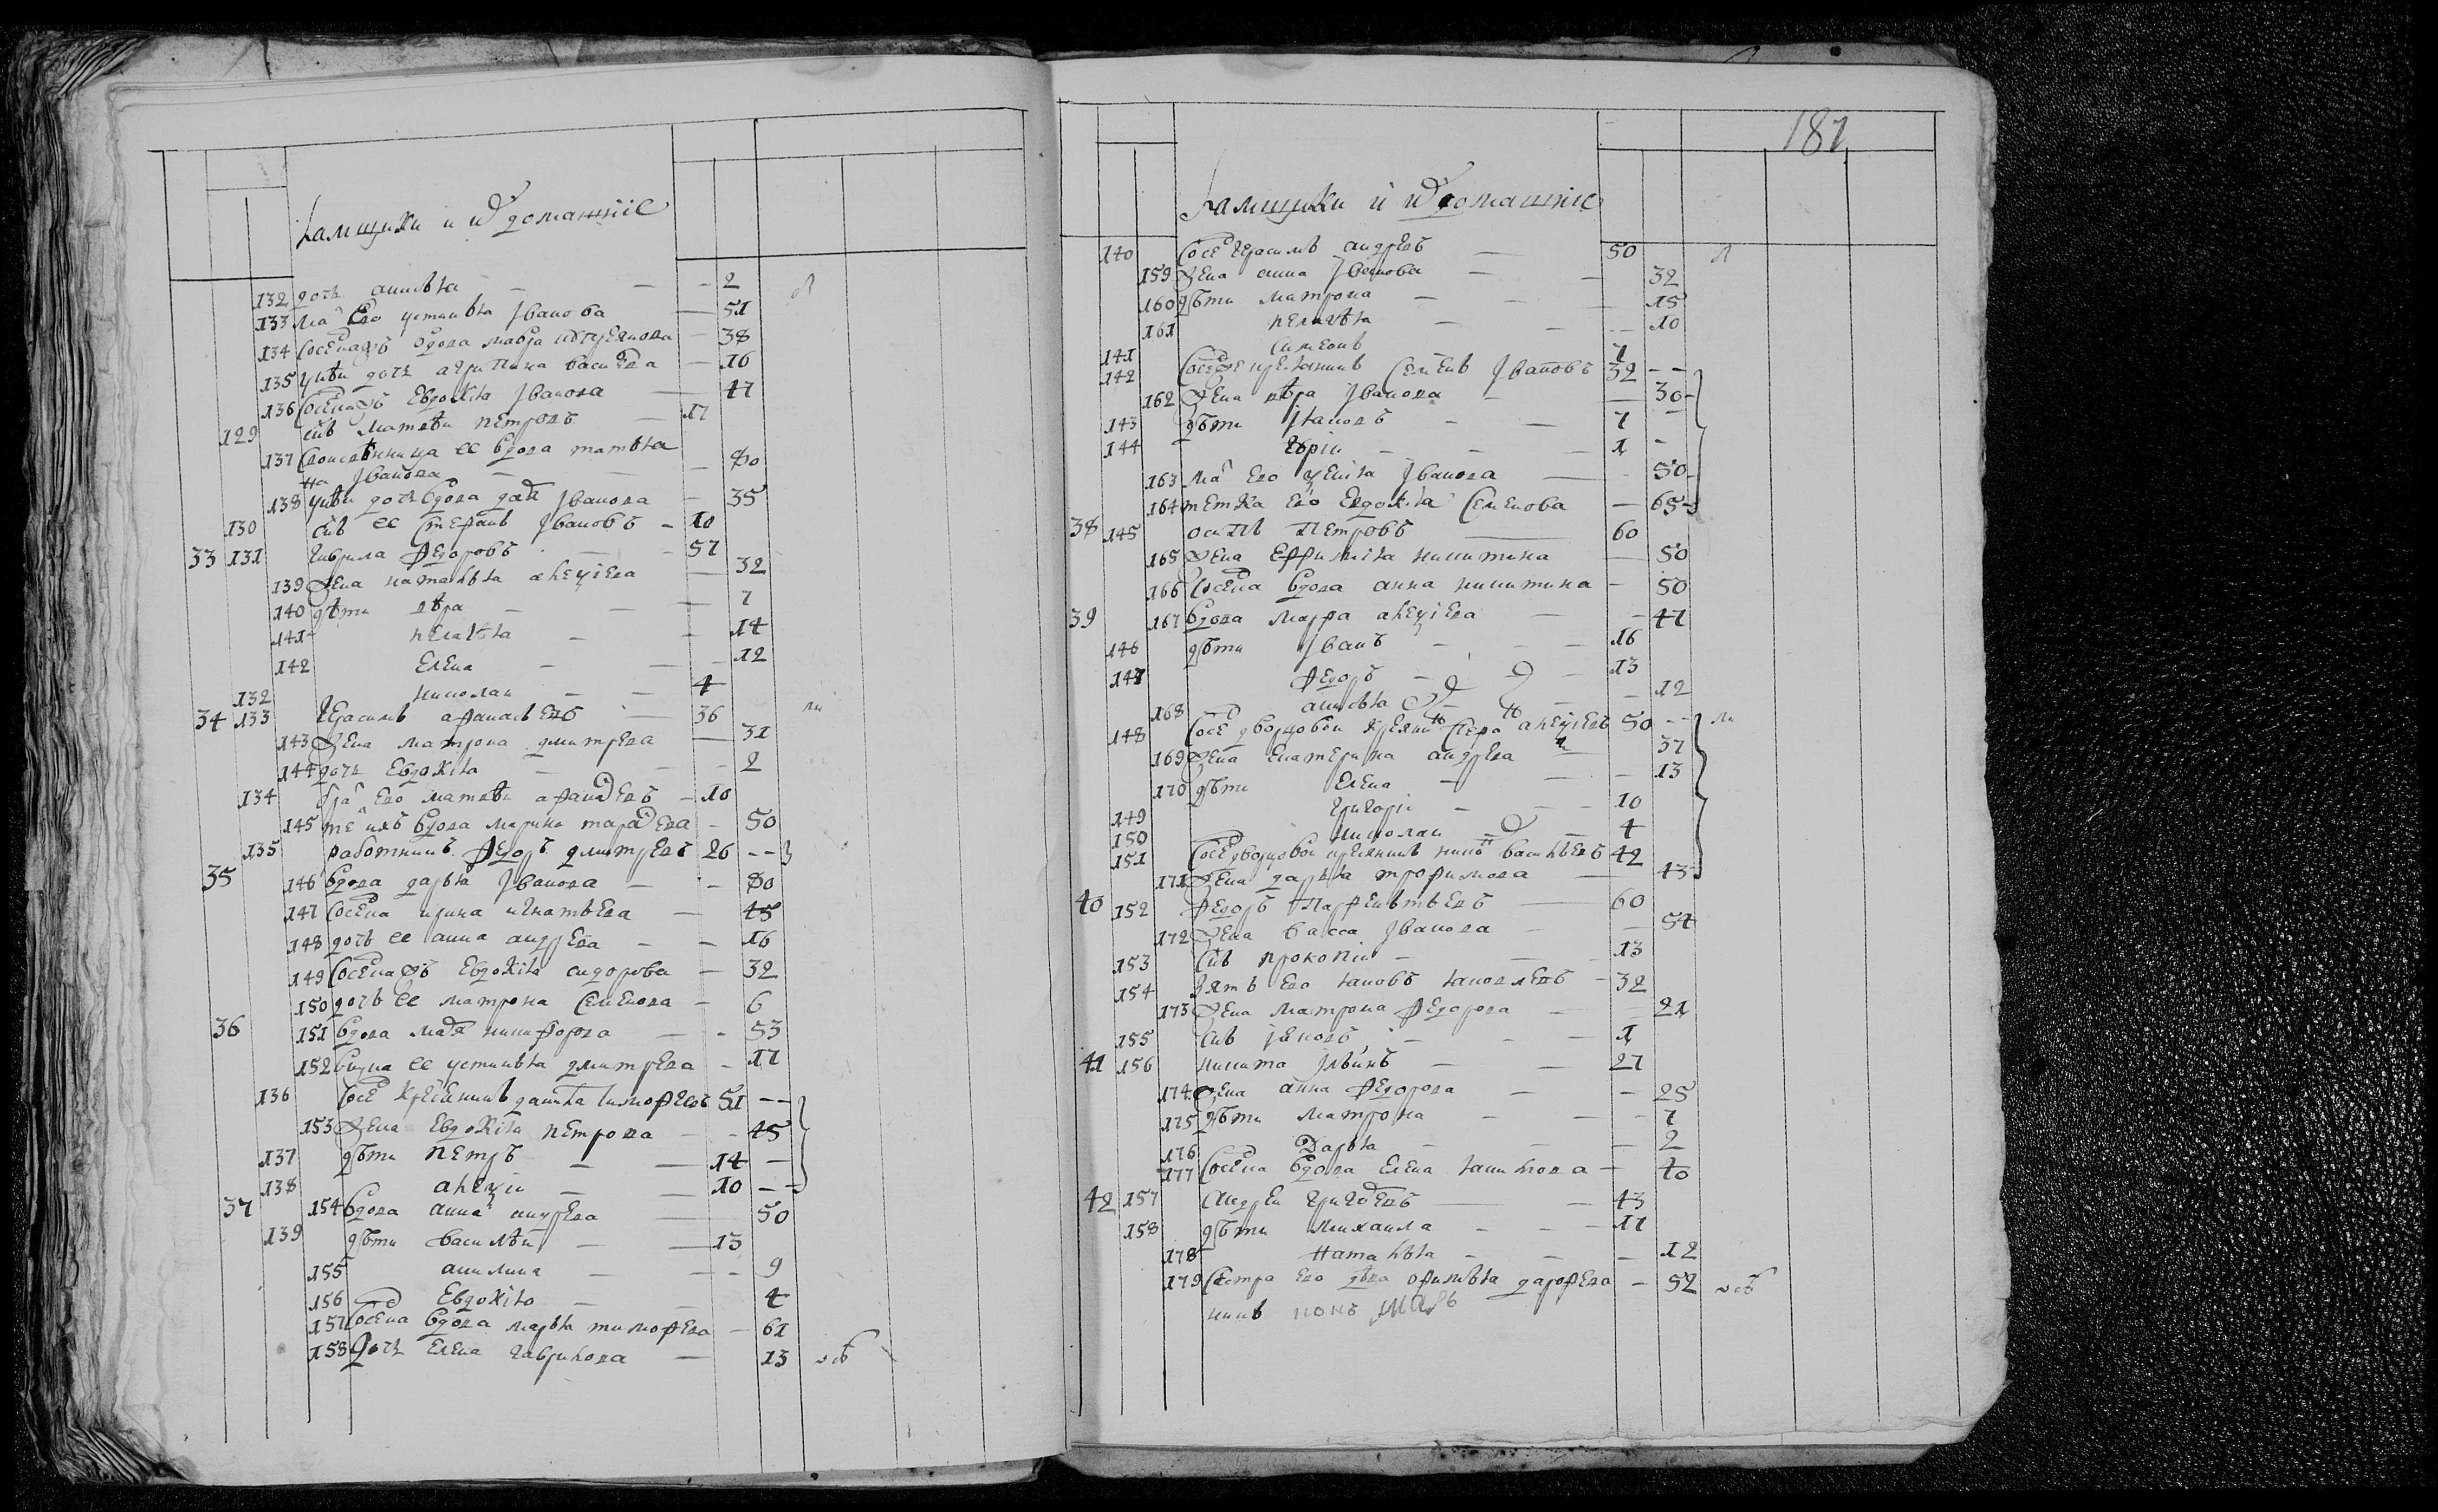 Ямщики и их домашние
132 дочь анисья — — 2
133 мать Его устинья Іванова — 51
134 Соседка вдова мавра — 38
135 у неи дочь агрипина васильева — 16
136 Соседка Евдокія Іванова — 47
129 сынъ матвеи петровъ — 17
137 ее вдова татья
на Іванова — 80
138 у неи дочь вдова Іванова — 35
130 сынъ ее Стефанъ Івановъ — 10
33 131 гаврила Федоровъ — 57
139 жена наталья алеѯіева — 32
140 дѣти — 7
141 пелагѣя — 14
142 Елена — 12
132 николаи — 4
34 133 герасимъ афанасьевъ — 36
143 жена матрона дмитрева — 31
144 дочь Евдокія — 2
134 братъ Его матвеи афанасьевъ — 10
145 вдова марина — 50
135 работникъ Федоръ дмитревъ 26 --
35 146 вдова дарья Іванова — 80
147 Соседка ирина игнатьева — 45
148 дочь ее анна андреева — 16
149 Соседка Евдокія сидорова — 32
150 дочь ее матрона Семенова — 6
36 151 вдова никифорова — 53
152 внука ее устинья дмитрева — 17
136 Соседъ крестьянинъ тимофеевъ 51 --
153 жена Евдокія петрова — 45
137 дѣти петръ — 14 —
138 алеѯѣи — 10 --
37 154 вдова анна андреева — 50
139 дѣти василѣи — 13
155 акилина — 9
156 Евдокія — 4
157 Соседка вдова марья тимофева — 61
158 Дочь Елена гаврилова — 13
187
Ямщики и их домашние
140 Соседъ герасимъ андревъ — 50
159 жена анна Іванова — 32
160 дѣти матрона — 15
161 пелагѣя — 10
141 симеонъ 7
142 Соседъ Семенъ Івановъ 32 --
162 жена Іванова — 30
143 дѣти Іаковъ — 7
144 — 1
163 мать Его Іванова — 50
164 тетка его Евдокія Семенова — 65
38 145 осипъ петровъ — 60
165 жена Ефимія никитина — 50
166 Соседка вдова анна никитина — 50
39 167 вдова марфа алеѯіева — 47
146 дѣти Іванъ — 16
147 Федоръ — 13
168 анисья — 12
148 Соседъ дворцовои алеѯіевъ 50 --
169 жена екатерина андрева — 37
170 дѣти Елена — 13
149 григорѣи — 10
150 николаи — 4
151 Соседъ дворцовои васильевъ 42
171 жена дарья трофимова — 43
40 152 Федоръ парфентьевъ — 60
172 жена васса Іванова — 54
153 сынъ прокопіи — 13
154 зять Его яковъ яковлевъ — 32
173 жена матрона Федорова — 21
155 сынъ іаковъ — 1
41 156 никита Ільинъ — 27
174 жена анна Федорова — 25
175 дѣти матрона — 7
176 Дарья — 2
177 Соседка вдова Елена яковлева — 40
42 157 Андреи григоревъ — 43
158 дѣти михаила — 17
178 наталья — 12
179 Сестра Его дѣвка дарофева — 52